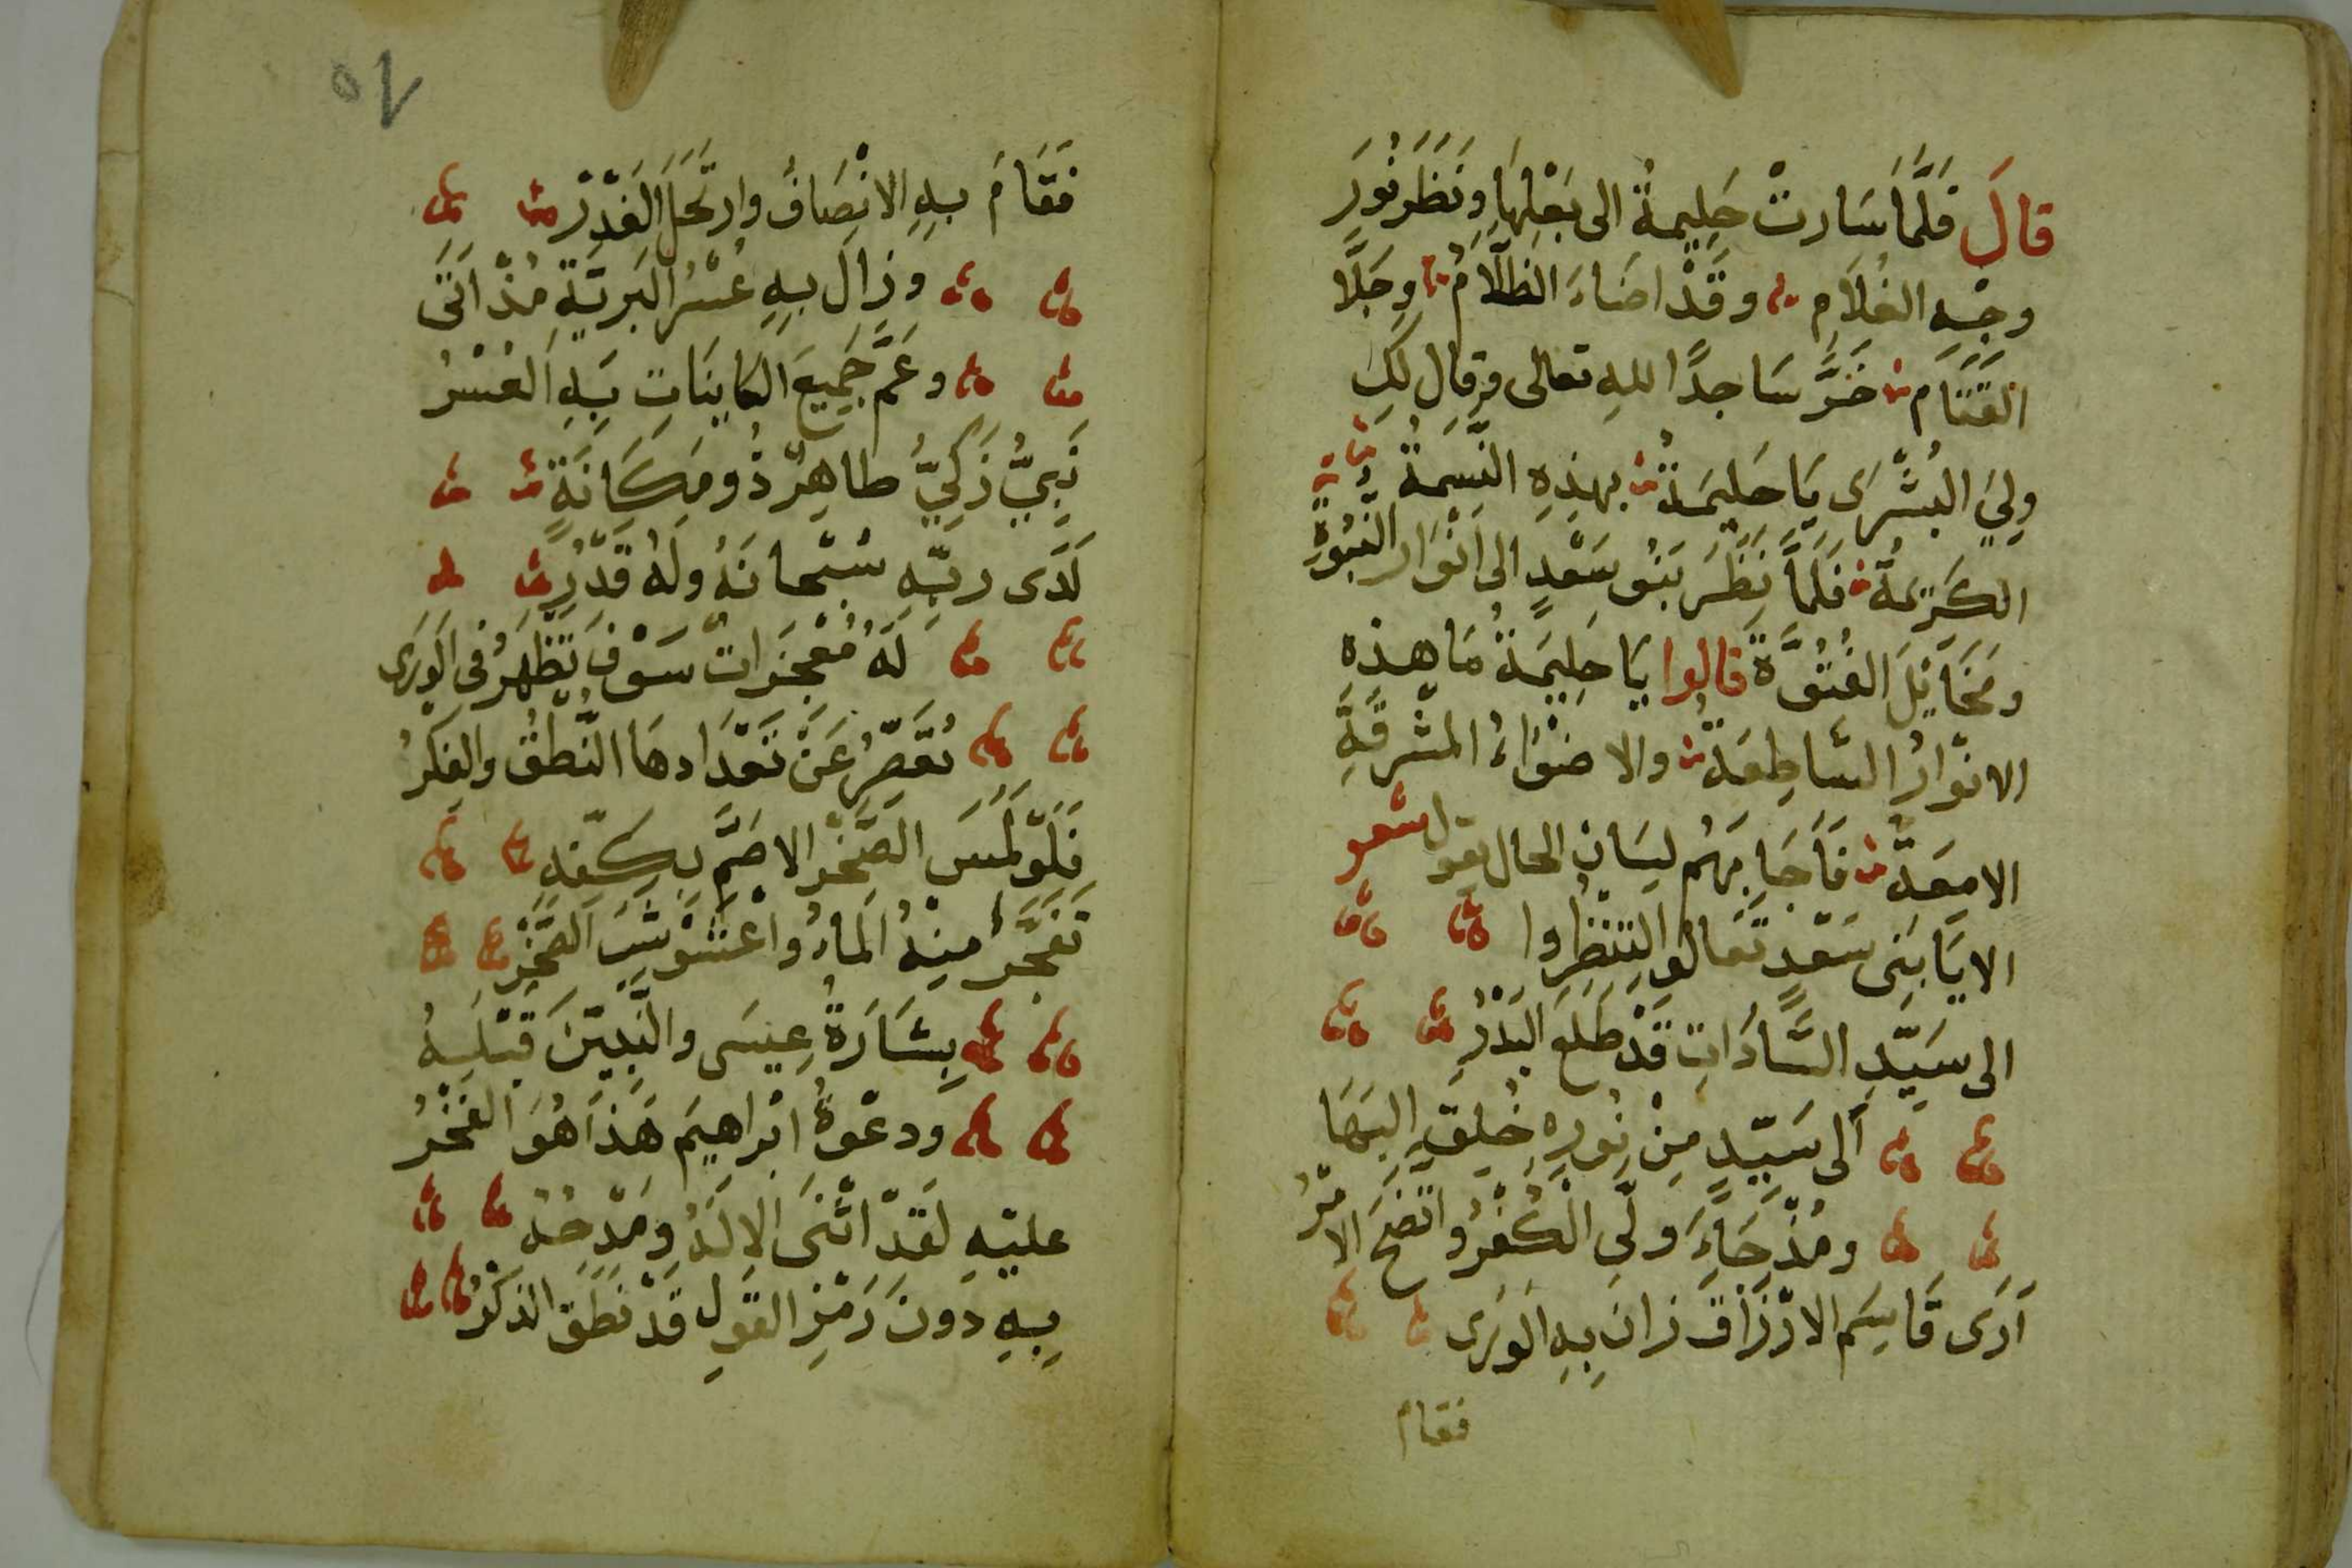 قالَ فَلَمَّا سَارتْ حَلِيمةُ الى بَعْلِهَا وَنَظَرَ نُورَ
وجْهِ الغُلاَمِ وقَدْ اضَاءَ الظلَّامُ وجَلَّا
القَتَامَ خَرَّ سَاجِدًا للهِ تعالى وقال لَكِ
ولِيَ البُشْرَى يَا حَلِيمَةُ بهذِهِ النَّسِمَةُ
الكَرِيمَةُ فَلَمَّا نَظَرَ بَنُو سَعْدٍ الى انْوَارِ النُّبُوَّةِ
ومَخَايِلَ الفُتُوَّةَ قالوا يَا حَلِيمَةُ مَا هذه
الانْوَارُ السَّاطِعَةُ والاضْوَاءُ المشْرِقَةِ
الامِعَةُ فَأَجَابَهُم لِسَان الحال يقول شعر
الا يَا بَنِى سَعْدٍ تَعَالو لِتَنْظُروا
الى سَيِّدِ السَّادَاتِ قَدْ طَلَعَ البَدْرُ
الى سَيِّدٍ مِنْ نُورِهِ خُلِقَ البَهَا
ومُذْ جَاءَ وَلَّى الْكُفْرُ واتَّضَحَ الامْرُ
اَرَى قَاسِمَ الارْزَاقَ زانَ بِهِ الوَرَى
فقام
٥٢
فَقَامَ بِهِ الانْصَافُ وارتَحَلَ الغَدْرُ
وزالَ بِهِ عُسْرُ البَرِيَّةِ مُذْ اَتَى
وعَمَّ جَمِيعَ الكايِنَاتِ بِهِ اليُسْرُ
نَبِيٌّ زَكِيٌّ طاهِرٌ ذُو مَكَانَةٍ
لَدَى ربِّهِ سُبْحانَهُ ولَهُ قَدْرُ
لَهُ مُعْجِزَاتٌ سَوْفَ تَظْهَرُ فى الوَرَى
تُقَصِّرُ عَنْ تَعْدَادِهَا النُّطْقُ والفِكْرُ
فَلَوْ لَمَسَ الصَّخْرَ الاصَمَّ بِكَفِّهِ
تَفَجَّرَ مِنْهُ المَاءُ واعْشَوْشَبَ الصَّخْرُ
بِشَارَةُ عِيسَى والنَّبِيِّينَ قَبْلِهُ
ودعْوَةُ ابْراهِيمَ هَذَا هُوَ الفَخْرُ
عليْهِ لقَدْ اثْنَى الالَهُ ومَدْحُهُ
بِهِ دونَ رَمْزِ القَولِ قَدْ نَطَقَ الذكْرُ